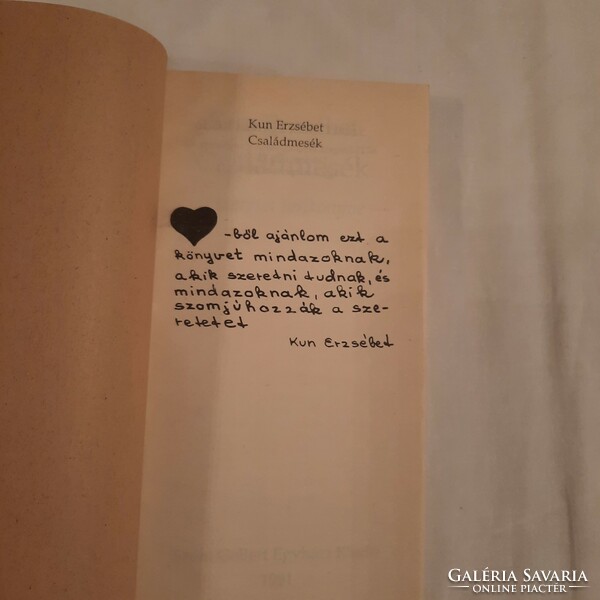 Kun Erzsébet
Családmesék
-ből ajánlom ezt a
könyvet mindazoknak,
akik szeretni tudnak, és
mindazoknak, akik
szomjúhozzák a sze-
retetet
Kun Erzsébet
GALÉRIA SAVARIA
ONLINE PIACTÉR